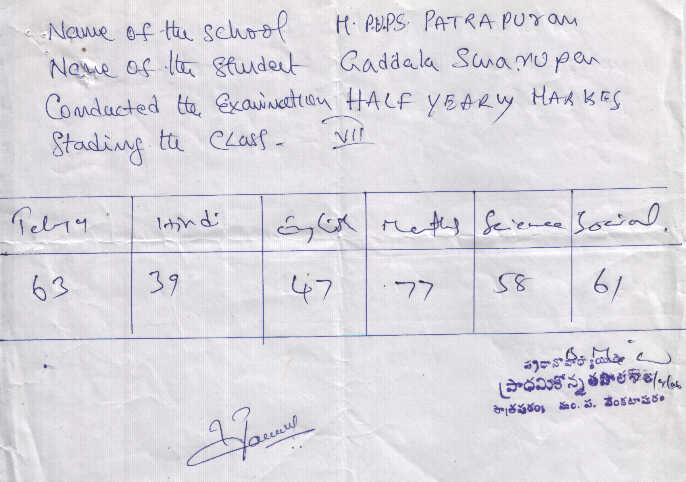 Name of the school H. PUPS. PATRAPURam
Name of the Student Gaddala Swarupa
Conducted the Examination HALF YEARly MARKES
Stading the Class - VII
Telugu Hindi English Maths Science Social.
63 39 47 77 58 61
ప్రధానోపాధ్యాయుడు
ప్రాధమికోన్నత పాఠశాల
పాత్రపురం, మం. ప. వెంకటాపురం